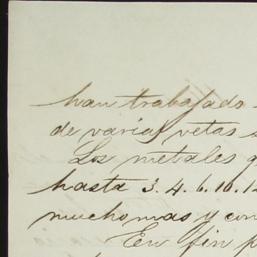 han trabajado
de varias vetas
Los metales
hasta 3. 4. 6. 10. 1
mucho mas y con
En fin p